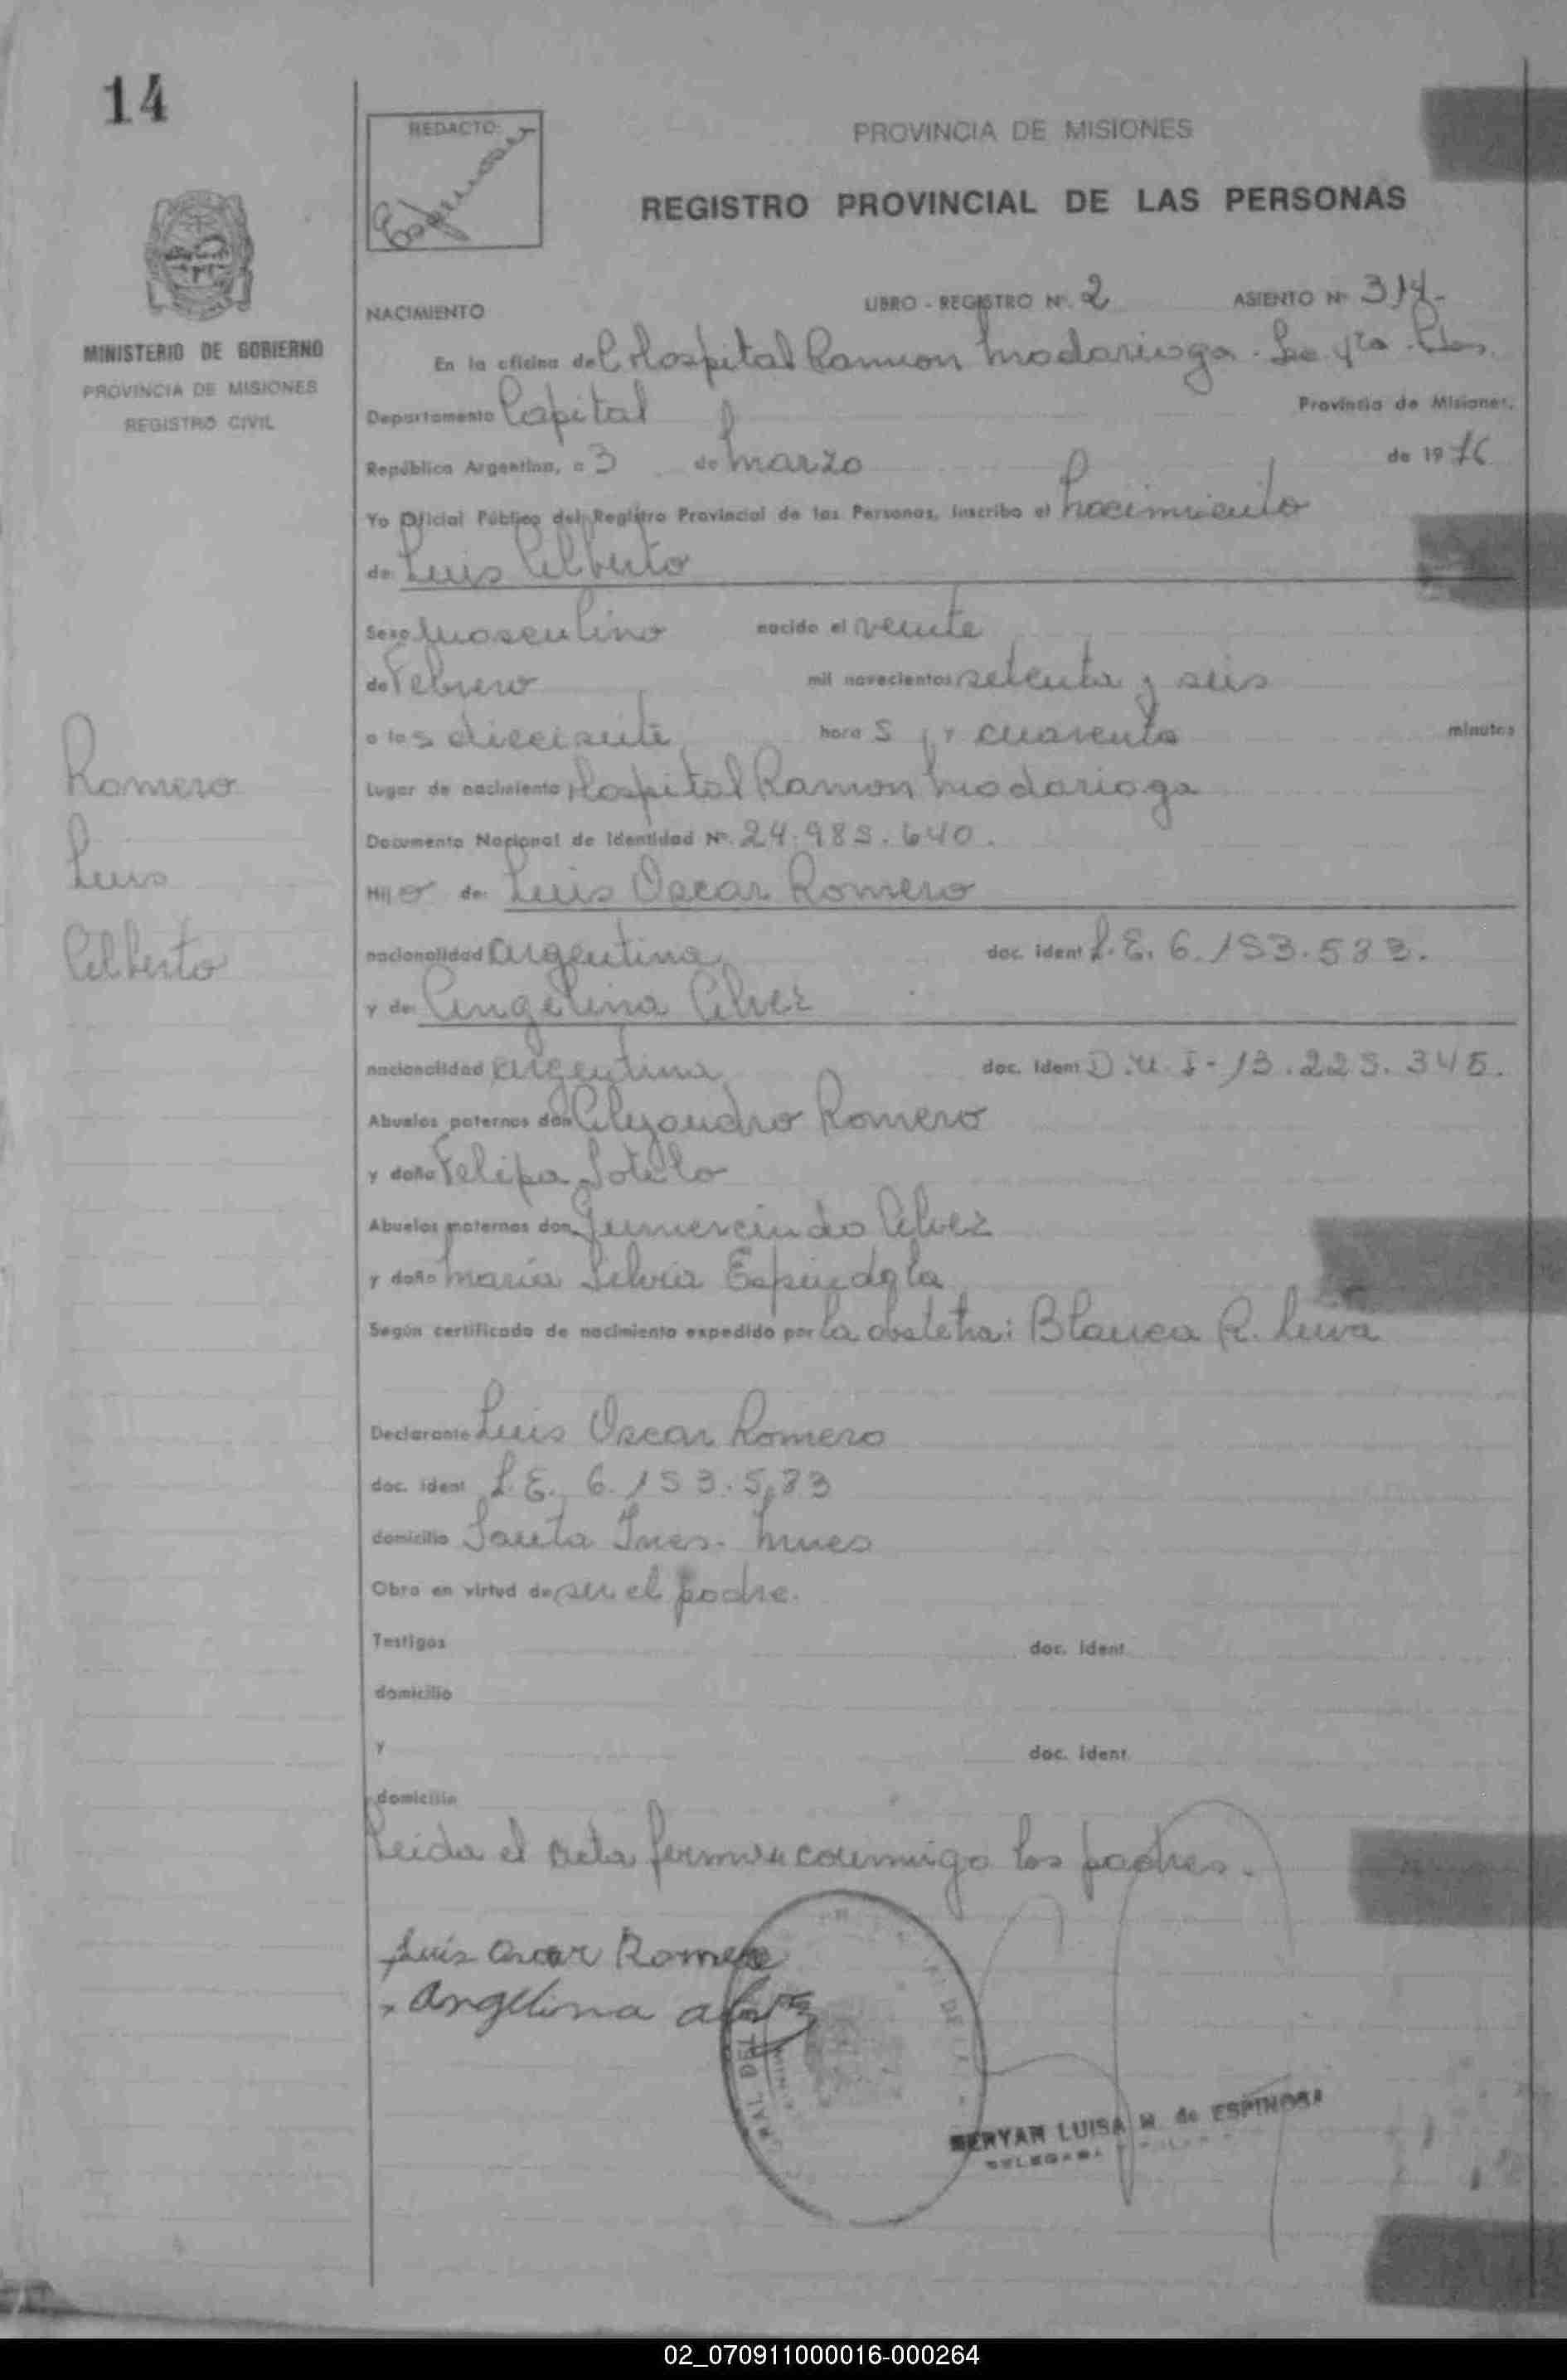 14
REDACTO:
PROVINCIA DE MISIONES
REGISTRO PROVINCIAL DE LAS PERSONAS
MINISTERIO DE GOBIERNO
PROVINCIA DE MISIONES
REGISTRO CIVIL
NACIMIENTO LIBRO - REGISTRO Nº. 2 ASIENTO Nº 314-
En la oficina del Hospital Ramon Madariaga.
Departamento Capital Provincia de Misiones,
República Argentina, a 3 de Marzo de 1976
Yo Oficial Público del Registro Provincial de las Personas, inscribo el nacimiento
de: Luis Alberto
Sexo masculino nacido el veinte
de Febrero mil novecientos setenta y seis
a las diecisiete horas y cuarenta minutos
Lugar de nacimiento Hospital Ramon Madariaga
Documento Nacional de Identidad Nº. 24.985.640.
Hijo de: Luis Oscar Romero
nacionalidad argentina doc. ident L.E. 6.153.533.
y de: Angelina Alvez
nacionalidad argentina doc. ident D.N.I- 13.225.345.
Abuelos paternos don Alejandro Romero
y doña Felipa Sotelo
Abuelos maternos don Gumercindo Alvez
y doña Maria Silvia Espindola
Según certificado de nacimiento expedido por la obstetra: Blanca R. Leiva
Declarante Luis Oscar Romero
doc. ident L.E. 6.153.533
domicilio Santa Ines.
Obra en virtud de ser el padre.
Testigos doc. ident
domicilio
y doc. ident
domicilio
Leida el acta firman conmigo los padres.
Luis Oscar Romero
Angelina Alvez
MERYAN LUISA M. de ESPINOSA
DELEGADA
Romero
Luis
Alberto
02_070911000016-000264